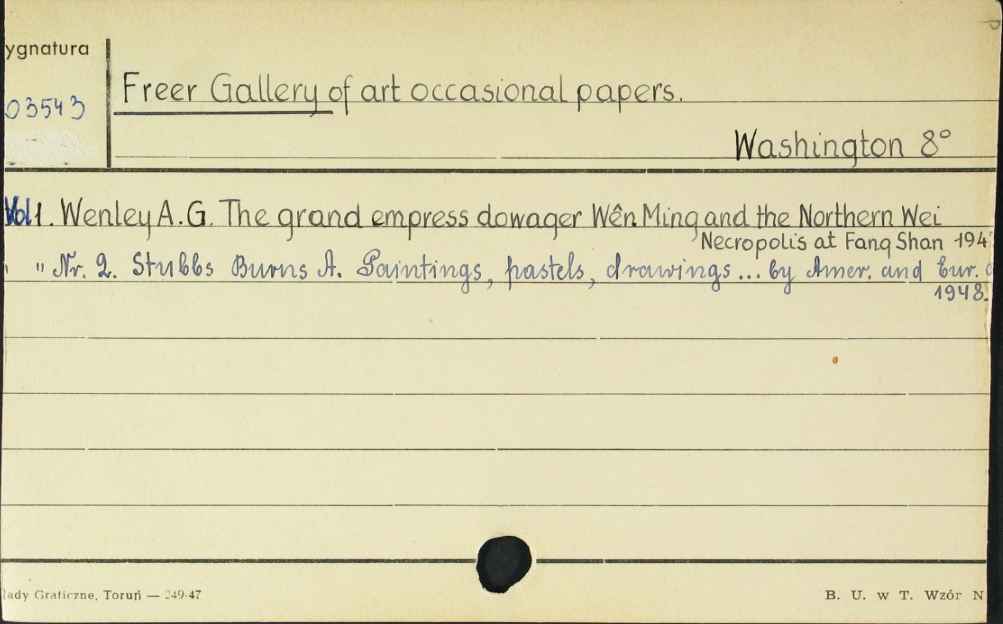 ygnatura
03543
Freer Gallery of art occasional papers.
Washington 8°
Vol 1. Wenley A.G. The grand empress dowager Wên Ming and the Northern Wei
Necropolis at Fang Shan 194
" " Nr. 2. Stubbs Burns A. Paintings, pastels, drawings ... by Amer. and Eur. a
1948.
łady Graficzne, Toruń — 249-47
B. U. w T. Wzór N